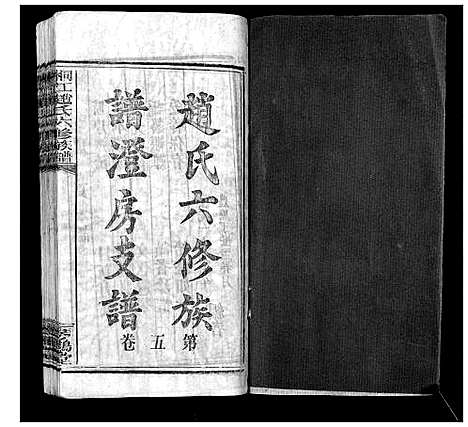 趙氏六修族
譜澄房支譜
第五卷
桐江趙氏六修族譜